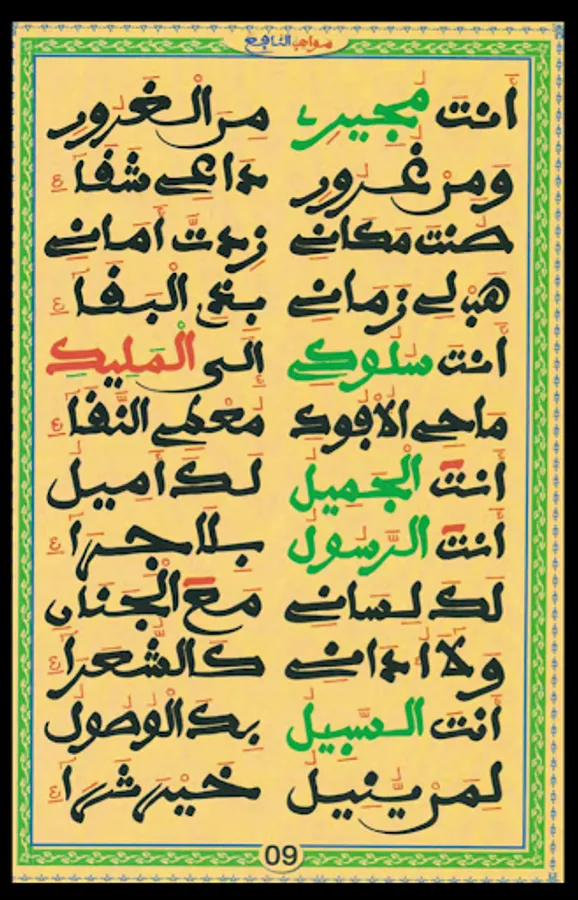 مواهب النافع
أنت مجيري من الغرور
ومن غرور داعي شفاء
صنت مكاني زدت أماني
هب لي زماني البقاء
أنت سلوكي إلى المليك
ماحي الأفوك معطي النقاء
أنت الجميل لك أميل
أنت الرسول بلا
لك لساني مع الجنان
ولا اداني كالشعراء
أنت السبيل بك الوصول
لمن ينيل خير شراء
09